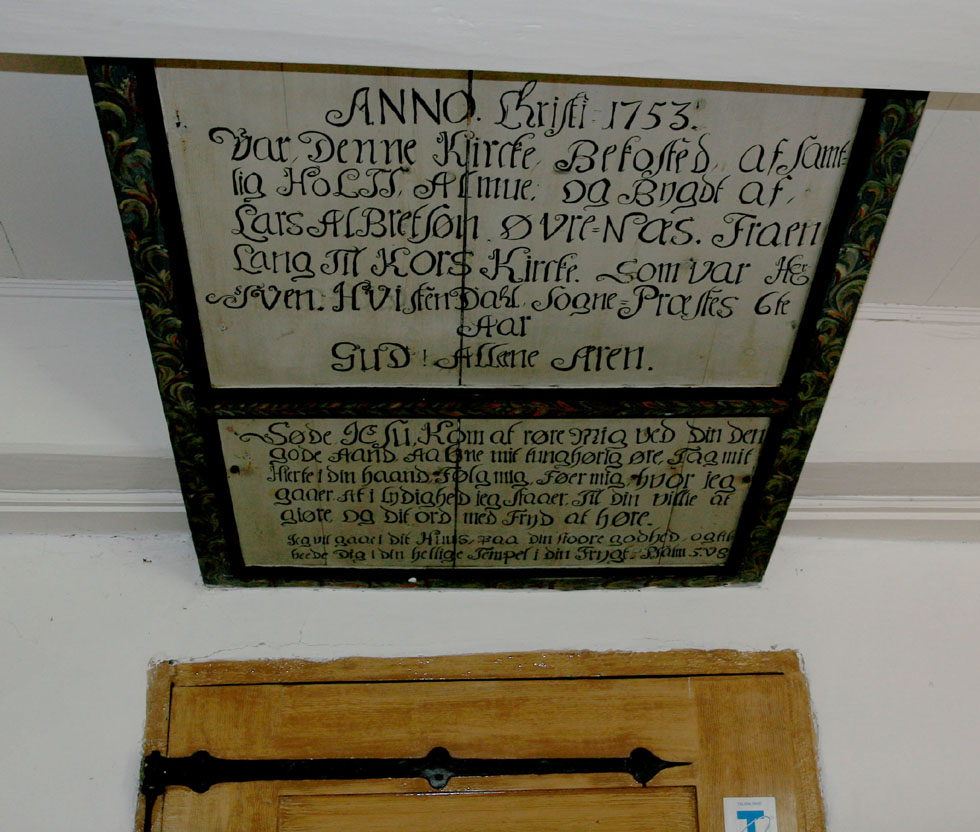 ANNO. Christi 1753.
Var, Denne Kircke, Bekosted, af Samt=
lig HoLTS, Almue, og Bygdt af,
Lars AlBretsøn Øvre=Næs. Fraen
Lang Til Kors Kircke. Som var Her
Iven. Hvistendahl. Sogne=Præstes 6te
Aar
GUD! Allene Æren.
Søde JESU, Kom at røre Mig ved Din Den
gode Aand Aabne mit tunghørig øre Tag mit
Hierte i din haand. Følg mig, Føer mig, hvor jeg
gaaer. At i Lydighed jeg staaer. Til Din villie at
giøre og Dit ord med Fryd at høre.
Jeg vil gaae i dit Huus, Paa din stoore godhed, og til
beede Dig i din hellige Tempel i din Frygt. Psalm 5. v 8